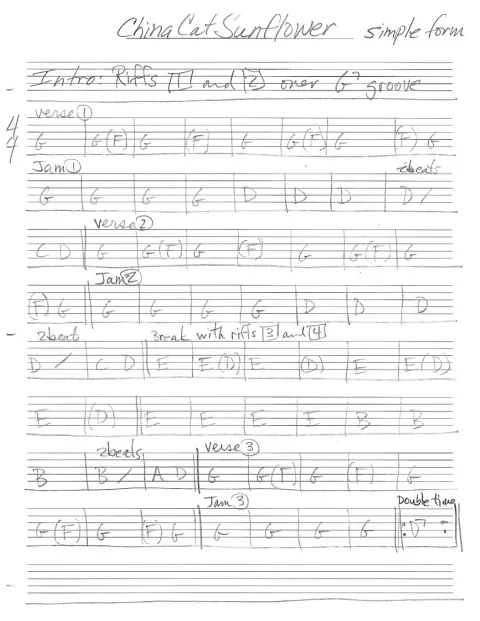 China Cat Sunflower simple form
Intro: Riffs 1 and 2 over G7 groove
verse 1
4/4 G | G (F) | G | (F) | G | G (F) | G | (F) G
Jam 1 2 beats
G | G | G | G | D | D | D | D /
verse 2
C D | G | G (F) | G | (F) | G | G (F) | G
Jam 2
(F) G | G | G | G | G | D | D | D
2 beats Break with riffs 3 and 4
D / | C D | E | E (D) | E | (D) | E | E (D)
E | (D) | E | E | E | E | B | B
2 beats verse 3
B | B / | A D | G | G (F) | G | (F) | G
Jam 3 Double time
G (F) | G | (F) G | G | G | G | G |: D7 :|